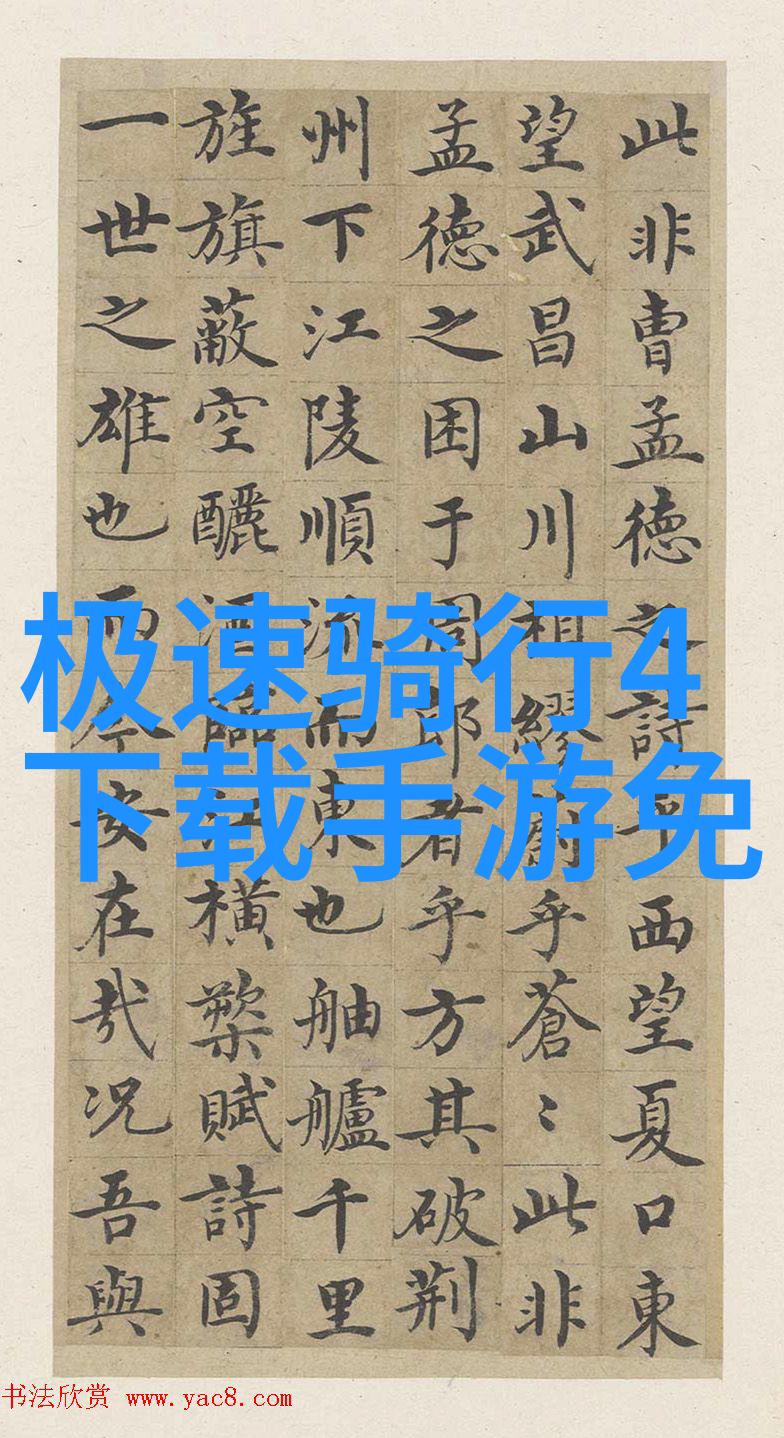 此非曹孟德之詩乎西望夏口東
望武昌山川相繆蔚乎蒼〻此非
孟德之困于周郎者乎方其破荆
州下江陵順流而東也舳艫千里
旌旗蔽空釃酒臨江横槊賦詩固
一世之雄也而今安在哉况吾與
极速骑行4
下载手游免
书法欣赏 www.yac8.com